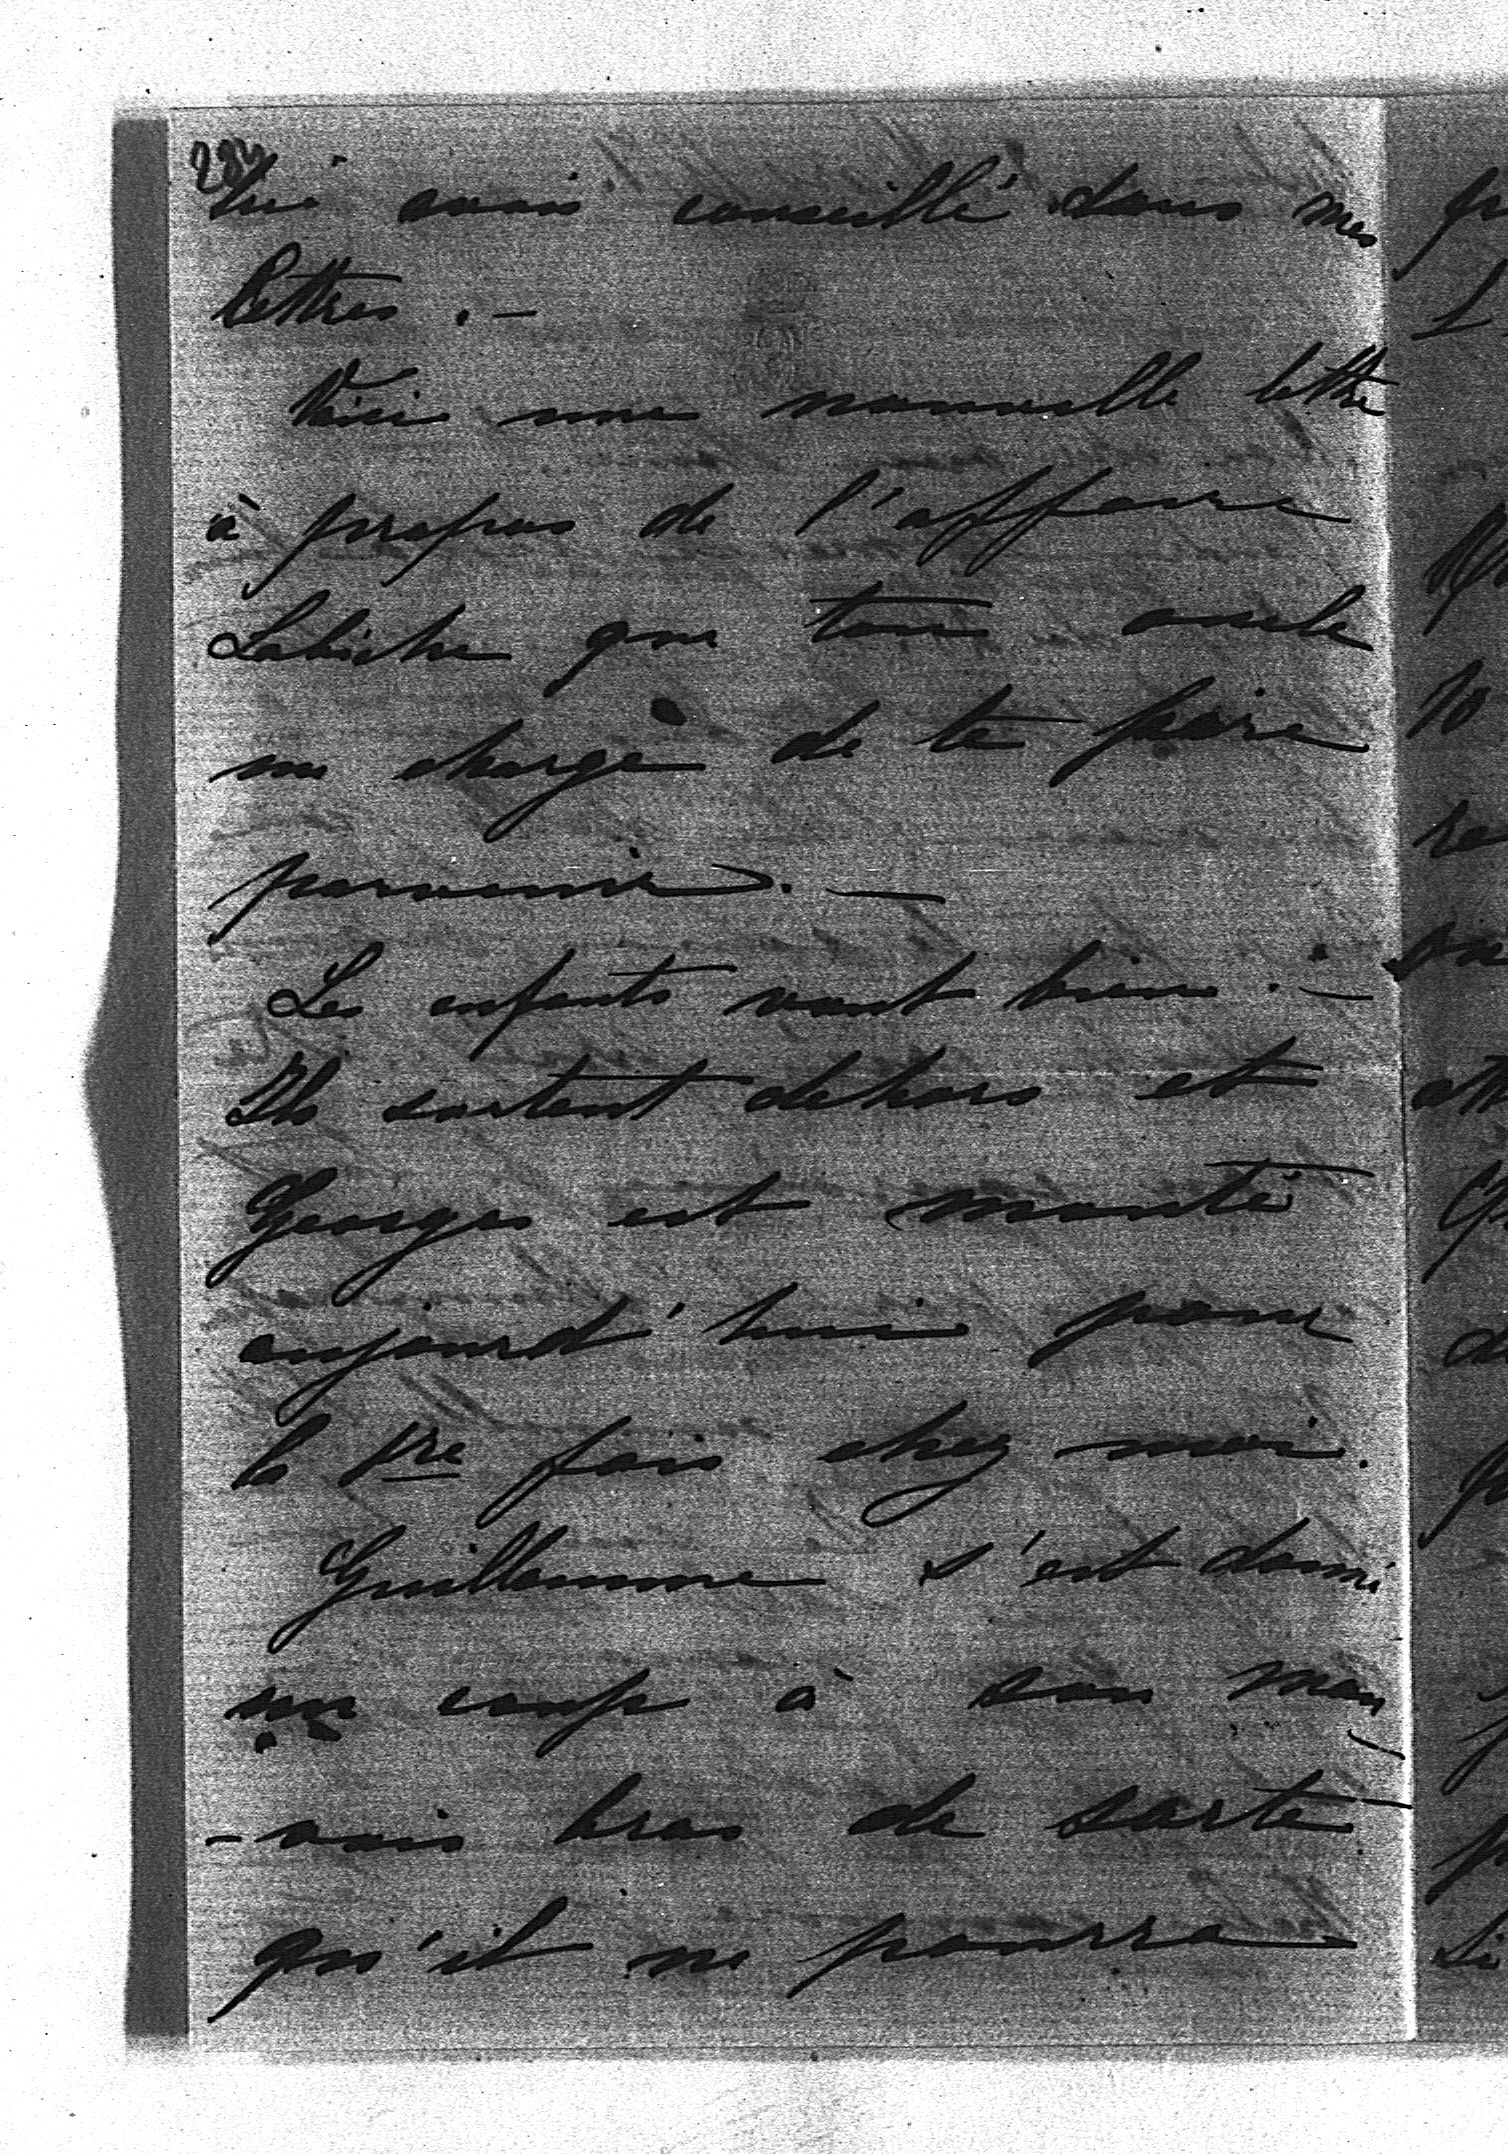 lui avais conseillé dans mes
lettres . -
Voici une nouvelle lettre
à propos de l'affaire
Labiche que ton oncle
me charge de te faire
parvenir. -
Les enfants vont bien . -
Ils sortent dehors et
Georges est monté
aujourd'hui pour
la 1re fois chez moi.
Guillaume s'est donné
un coup à son mau
- vais bras de sorte
qu'il ne pourra